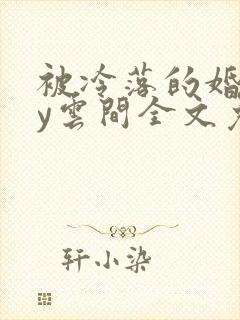 被冷落的婚
y雲間全文
轩小染